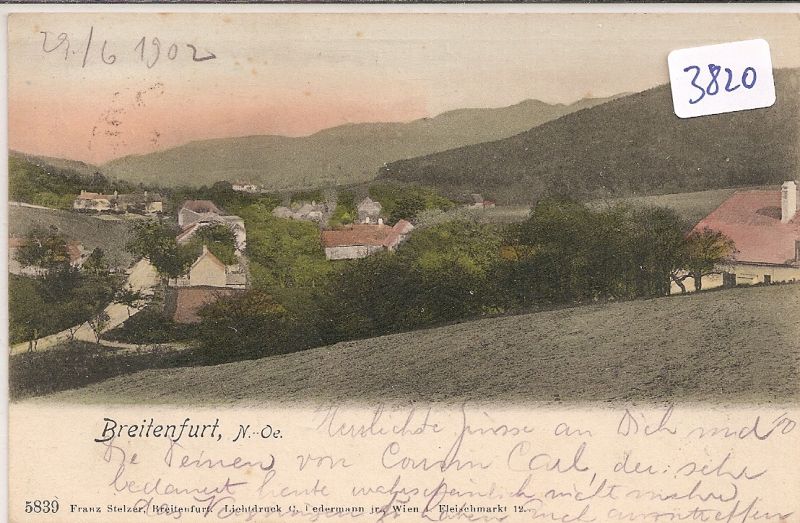 29./6 1902
3820
Breitenfurt, N.-Oe.
Herzlichste Grüsse an Dich und
die Deinen von Cousin Carl, der sehr
bedauert heute wahrscheinlich nicht mehr
das Vergnügen zu haben
5839 Franz Stelzer, Breitenfurt. Lichtdruck C. Ledermann jr., Wien I. Fleischmarkt 12.